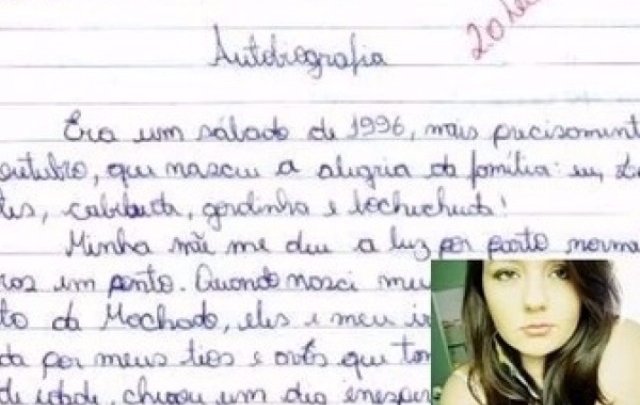 20
Autobiografia
Era um sábado de 1996, mais precisament
outubro, que nasceu a alegria da família: eu,
cabeluda, gordinha e bochechuda!
Minha mãe me deu a luz por parto norma
em ponto. Quando nasci meu
to da Machado, eles e meu ir
da por meus tios e avós que
de idade, chegou um dia inesper